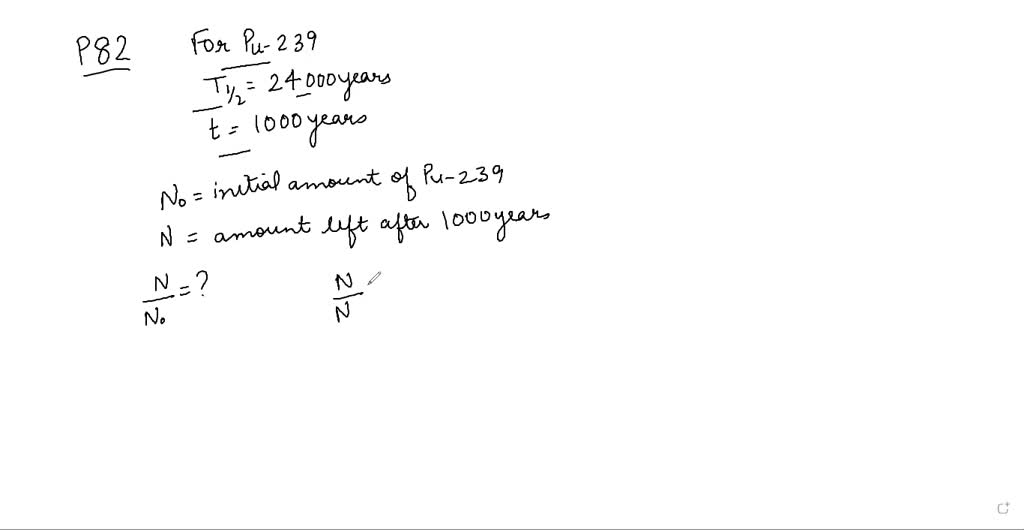 P82 For Pu-239
T1/2 = 24000years
t = 1000years
N₀ = initial amount of Pu-239
N = amount left after 1000years
N/N₀ = ? N/N